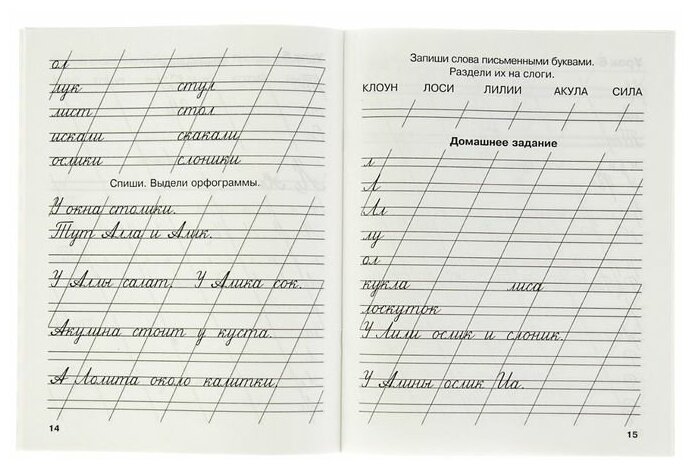 ол
лук стул
лист стол
искали скакали
ослики слоники
Спиши. Выдели орфограммы.
У окна столики.
Тут Алла и Алик.
У Аллы салат. У Алика сок.
Акулина стоит у куста.
А Лолита около калитки.
14
Запиши слова письменными буквами.
Раздели их на слоги.
КЛОУН ЛОСИ ЛИЛИИ АКУЛА СИЛА
Домашнее задание
л
Л
Лл
лу
ол
кукла лиса
лоскуток
У Лили ослик и слоник.
У Алины ослик Иа.
15